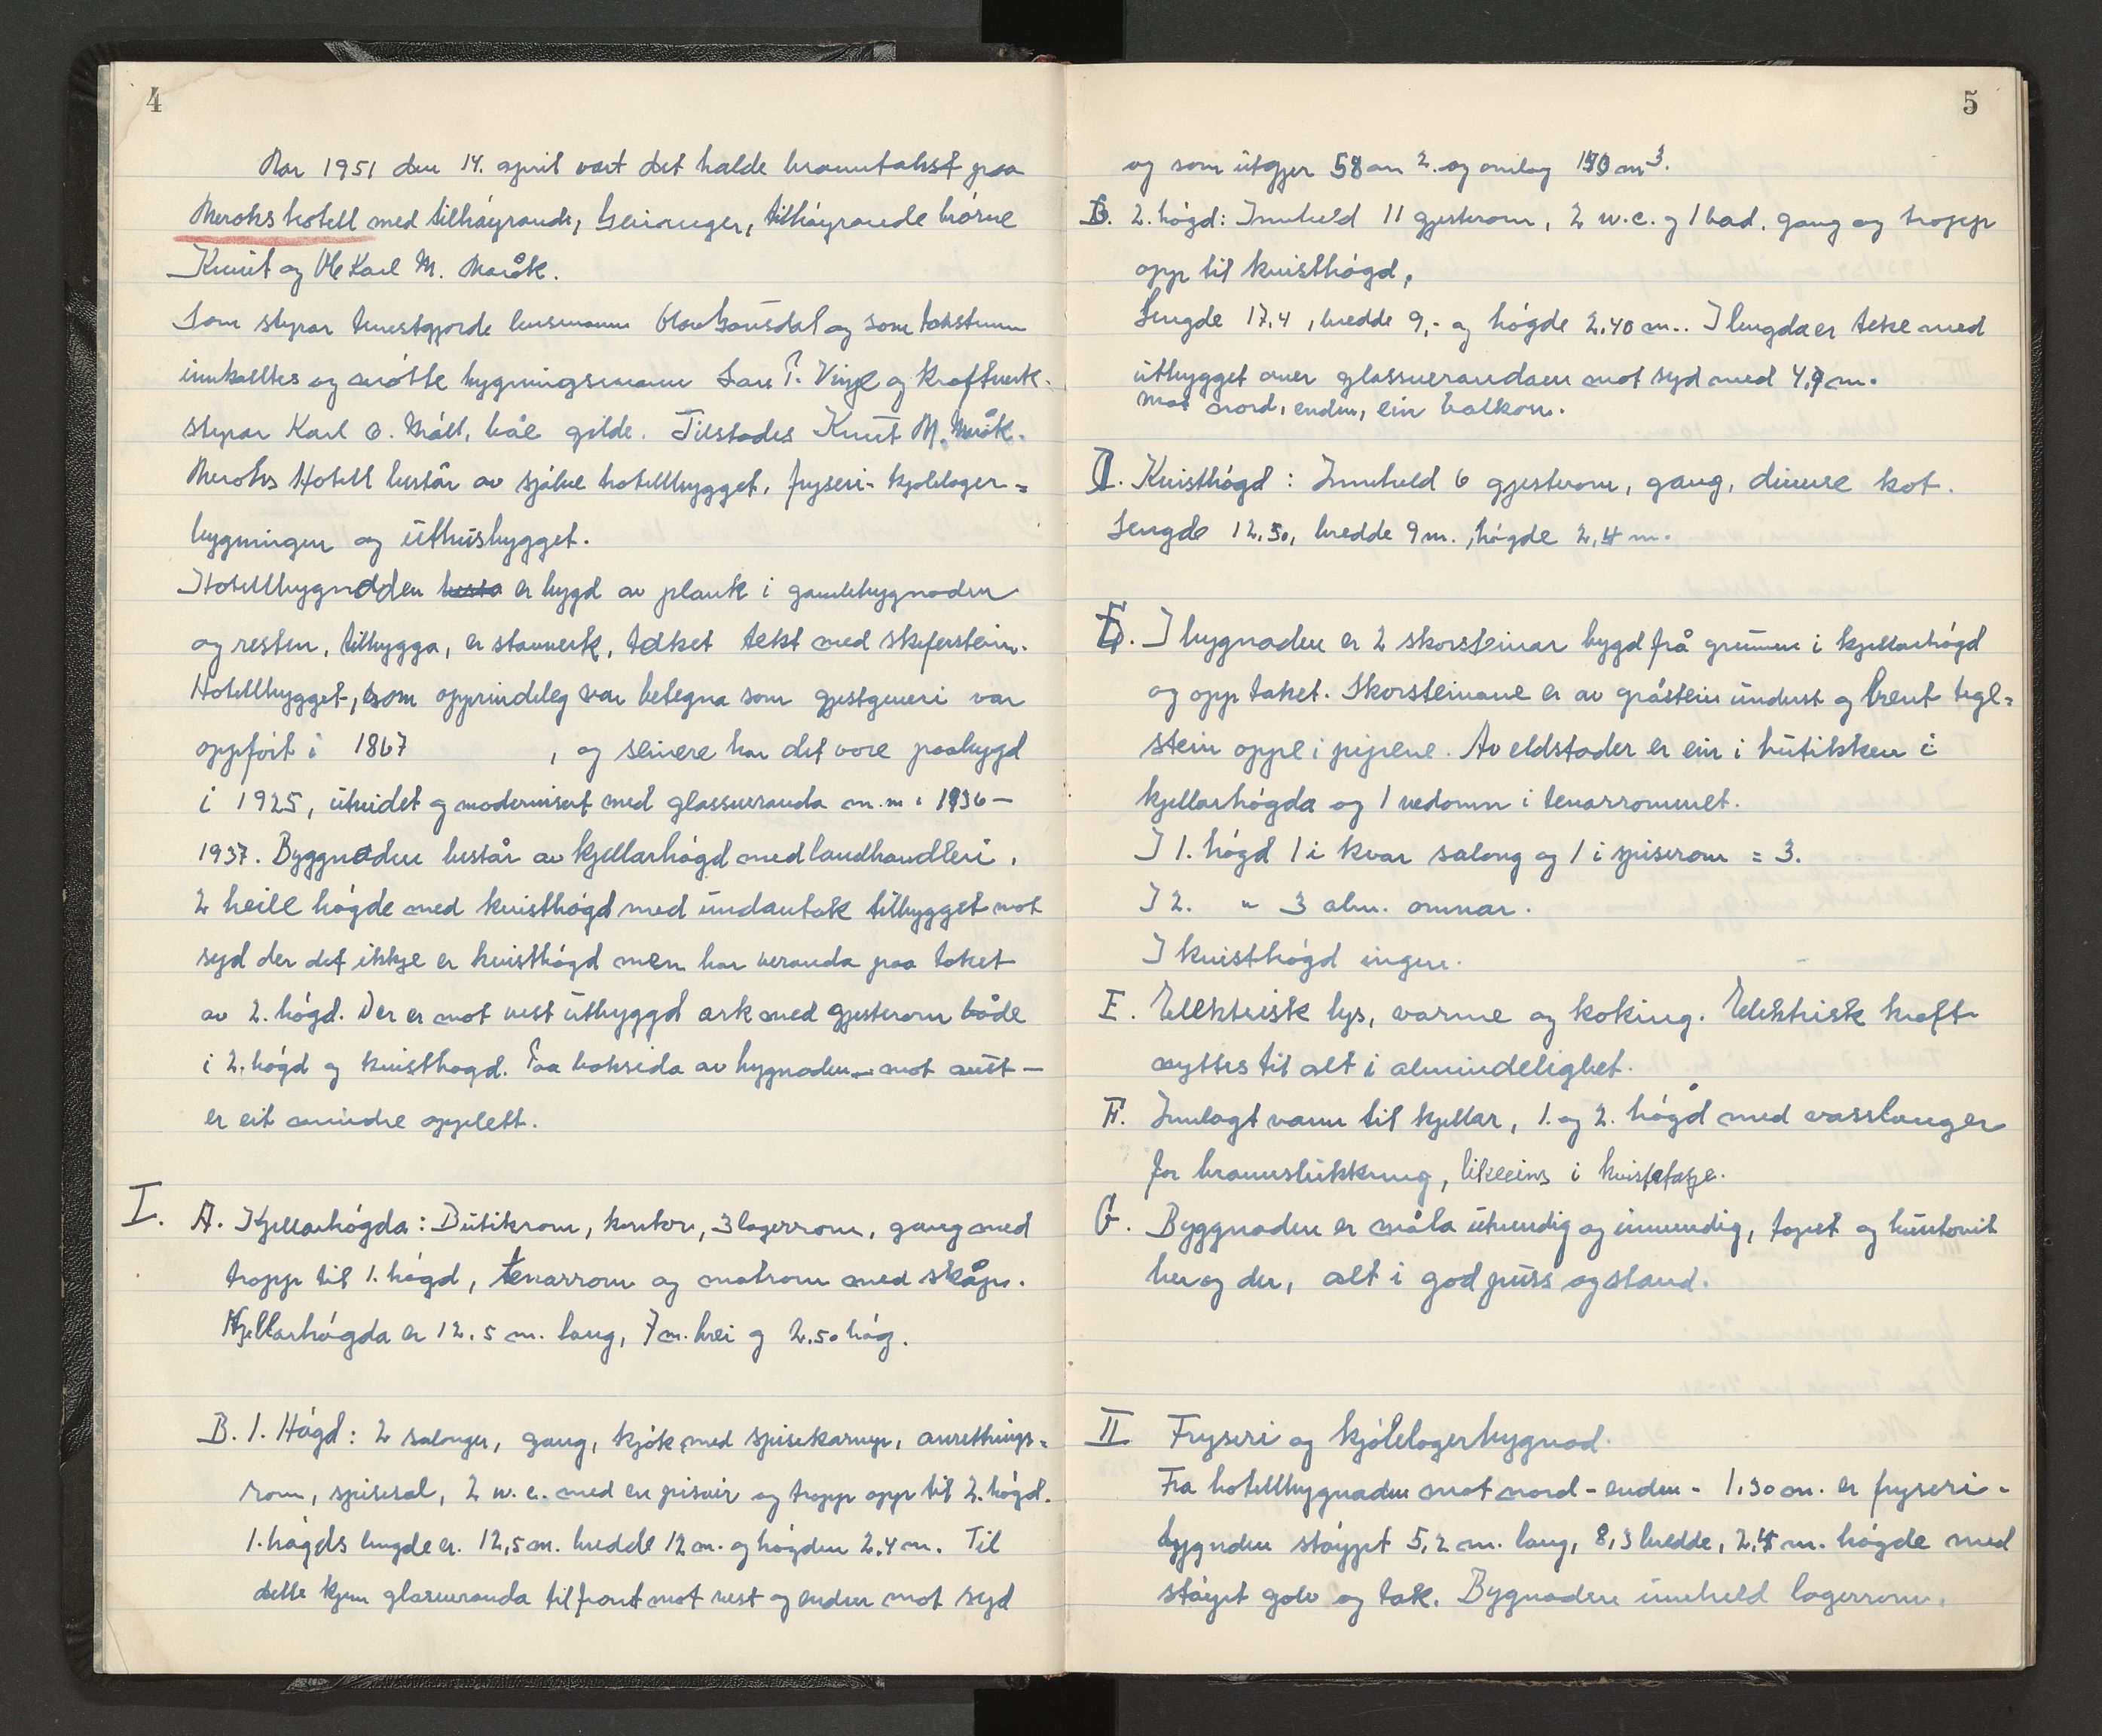 4
Aar 1951 den 14. april vart det halde branntakst paa
Meroks hotell med tilhøyrande, Geiranger, tilhøyrande brørne
Knut og Ole Karl M. Maråk.
Som styrar tenestgjorde lensmann Olav Gausdal og som takstmenn
innkalltes og møtte bygningsmann Lars P. Vinje og kraftverk-
styrar Karl O. Møll, båe gilde. Tilstades Knut M. Maråk.
Meroks Hotell består av sjølve hotellbygget, fryseri- kjølelager=
bygningen og uthusbygget.
Hotellbygnadden er bygd av plank i gamlebygnaden
og resten, tilbygga, er stavverk, taket tekt med skiferstein.
Hotellbygget, som opprindeleg var betegna som gjestgiveri var
oppført i 1867 , og seinere har det vore paabygd
i 1925, utvidet og modernisert med glassveranda m.m. i 1936–
1937. Byggnaden består av kjellarhøgd med landhandleri,
2 heile høgde med kvisthøgd med undantak tilbygget mot
syd der det ikkje er kvisthøgd men har veranda paa taket
av 2. høgd. Der er mot vest utbyggd ark med gjesterom både
i 2. høgd og kvisthøgd. Paa baksida av bygnaden – mot aust –
er eit mindre opplett.
I. A. Kjellarhøgda: Butikrom, kontor, 3 lagerrom, gang med
tropp til 1. høgd, tenarrom og matrom med skåp.
Kjellarhøgda er 12.5 m. lang, 7 m. brei og 2.50 høg.
B. 1. Høgd: 2 salonger, gang, kjøk med spisekammer, anrettnings=
rom, spisesal, 2 w.c. med en pissoir og tropp opp til 2. høgd.
1. høgds lengde er. 12,5 m. bredde 12 m. og høgden 2,4 m. Til
dette kjem glasveranda til front mot vest og enden mot syd
5
og som utgjer 58 m 2. og omlag 190 m3.
B. 2. høgd: Inneheld 11 gjesterom, 2 w.c. og 1 bad, gang og tropp
opp til kvisthøgd,
Lengde 17,4, bredde 9,- og høgde 2,40 m.. I lengda er teke med
utbygget over glassverandaen mot syd med 4,9 m.
Mot nord, enden, ein balkon.
D. Kvisthøgd: Inneheld 6 gjesterom, gang, diverse kot.
Lengde 12,50, bredde 9 m., høgde 2,4 m.
I bygnaden er 2 skorsteinar bygd frå grunnen i kjellarhøgd
og opp taket. Skorsteinane er av gråstein underst og brent tegl=
stein oppe i pipene. Av eldstader er ein i butikken i
kjellarhøgda og 1 vedomn i tenarrommet.
I 1. høgd 1 i kvar salong og 1 i spiserom = 3.
I 2. " 3 alm. omnar.
I kvisthøgd ingen.
E. Elektrisk lys, varme og koking. Elektrisk kraft
nyttes til alt i almindelighet.
F. Innlagt vann til kjellar, 1. og 2. høgd med vasslanger
for brannslukking, likeeins i kvistetasje.
G. Byggnaden er måla utvendig og innvendig, tapet og huntonit
her og der, alt i god puss og stand.
II Fryseri og kjølelagerbygnad.
Fra hotellbygnaden mot nord-enden - 1,30 m. er fryseri-
bygnden støypt 5,2 m. lang, 8,3 bredde, 2,4 m. høgde med
støypt golv og tak. Bygnaden inneheld lagerrom,